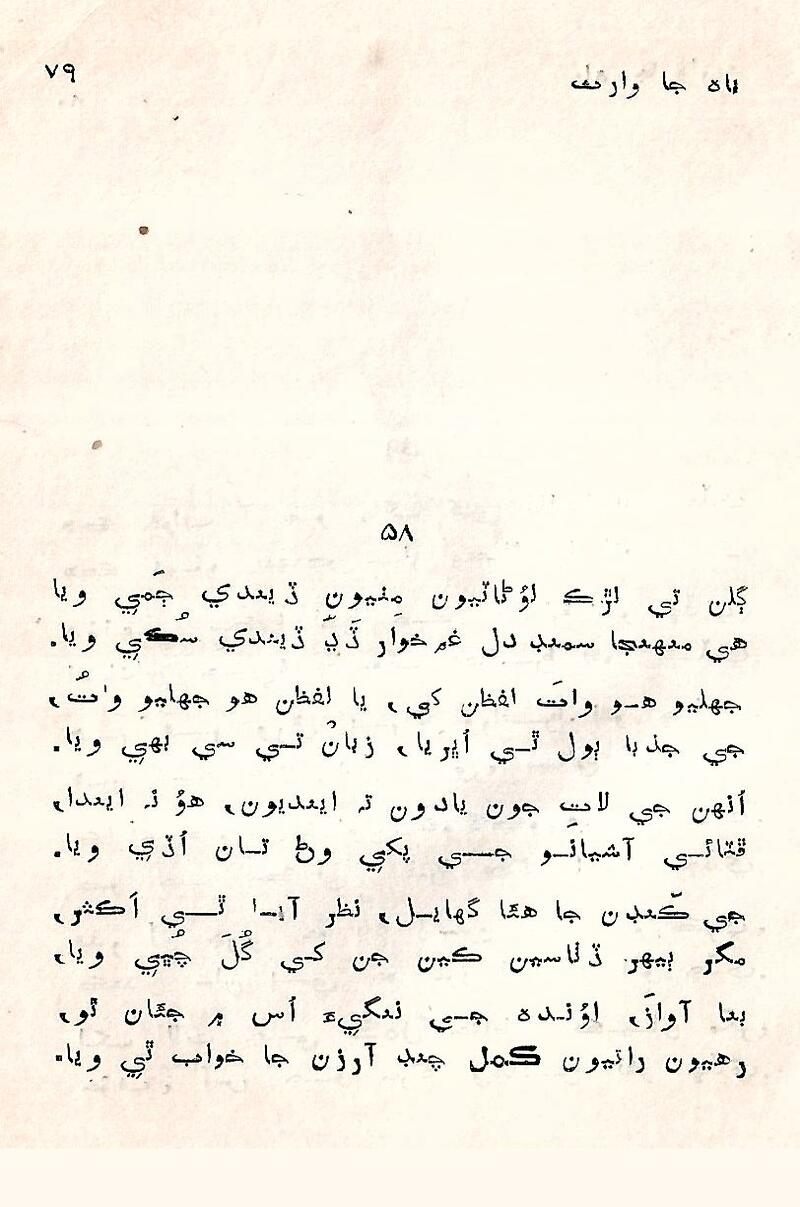 باه جا وارث
۷۹
۵۸
ڳلن تي لڙڪ لوُڻاٽيون مِٺيون ڏيندي ڄَمي ويا
هي منهنجا سمنڊ دل غم خوار ڏَڍَ ڏيندي سُڪي ويا.
جهليو هو واتَ لفظن کي، يا لفظن هو جهليو واتُ،
جي جذبا ٻول ٿي اُڀريا، زبانُ تي سي ٻهي ويا.
اُنهن جي لاتِ جون يادون تہ اينديون، هوُ نہ ايندا،
ڦٽائي آشيانو جي پکي وڻ تان اُڏي ويا.
جي ڪَنڊن جا هٿا گهايل، نظر آيا ٿي اَڪثر،
مگر ٻيهر ڏٺاسين ڪين جن کي گُلَ ڇُهي ويا،
بنا آوازَ، اوُنده جي ننگيءَ اُس ۾ جئان ٿو،
رهيون راتيون ڪمل چنڊ آرزن جا خواب ٿي ويا.